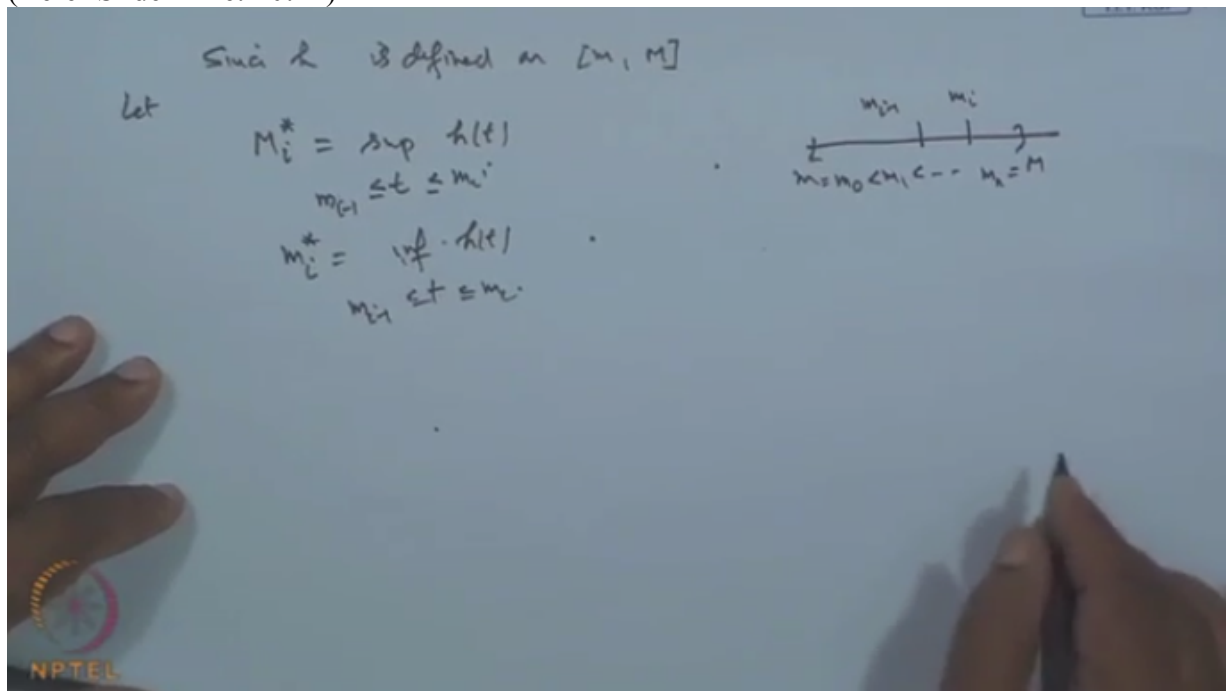 Since h is defined on [m, M]
Let
M_i^* = sup h(t)
m_{i-1} ≤ t ≤ m_i
m_i^* = inf h(t)
m_{i-1} ≤ t ≤ m_i.
m_{i-1} m_i
m = m_0 < m_1 < -- m_n = M
NPTEL